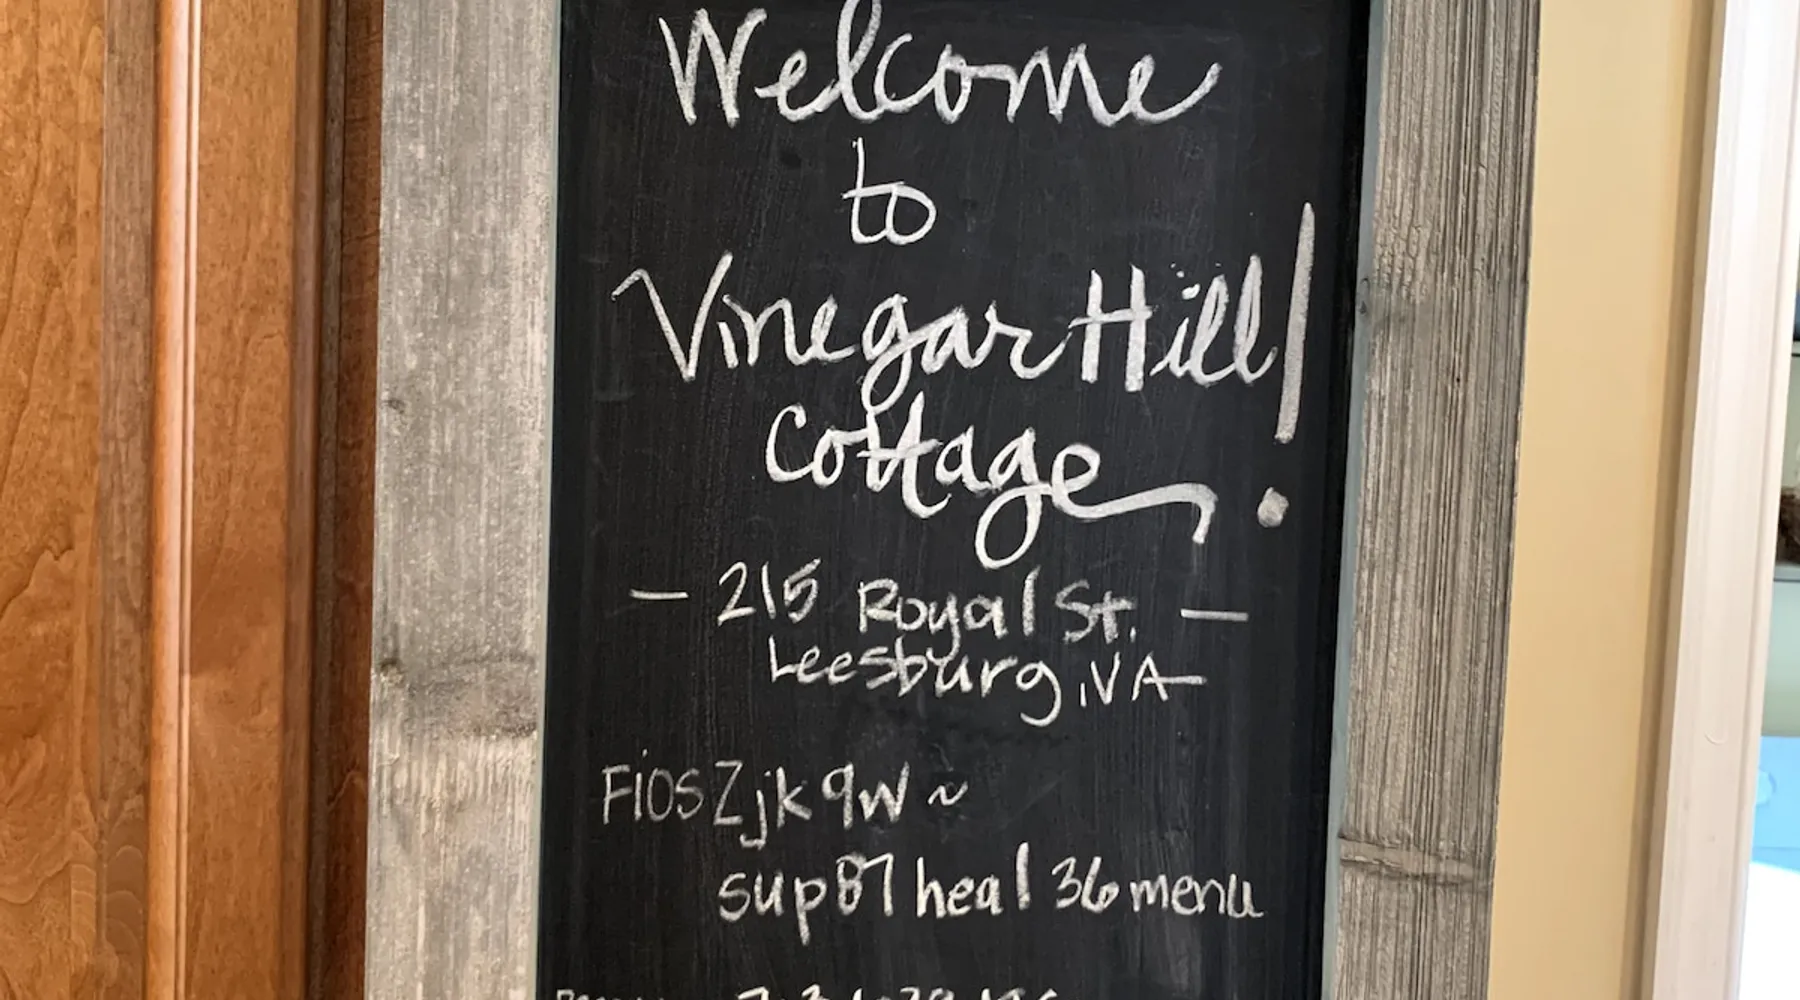 Welcome
to
Vinegar Hill!
Cottage
— 215 Royal St. —
Leesburg, VA
FiOSZjk9W ~
sup87heal36menu